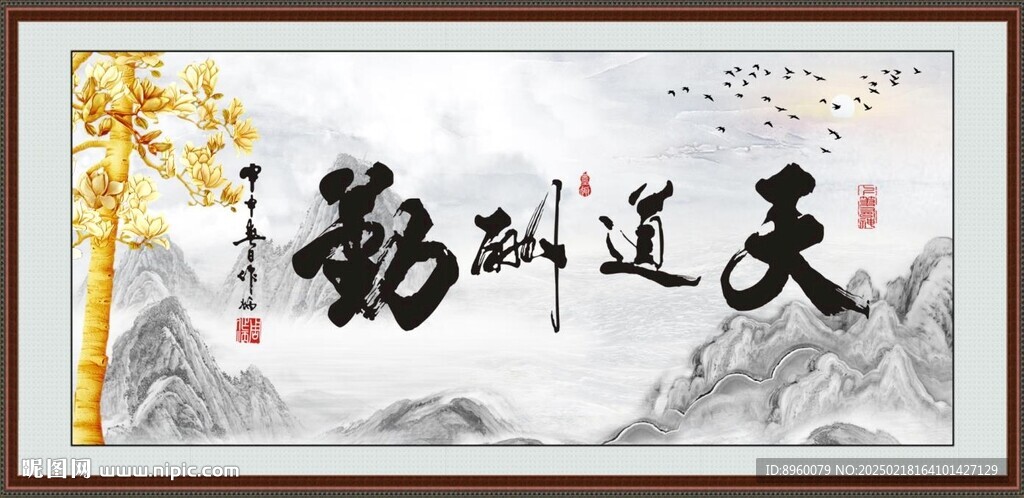 天道酬勤
昵图网 www.nipic.com
ID:8960079 NO:20250218164101427129